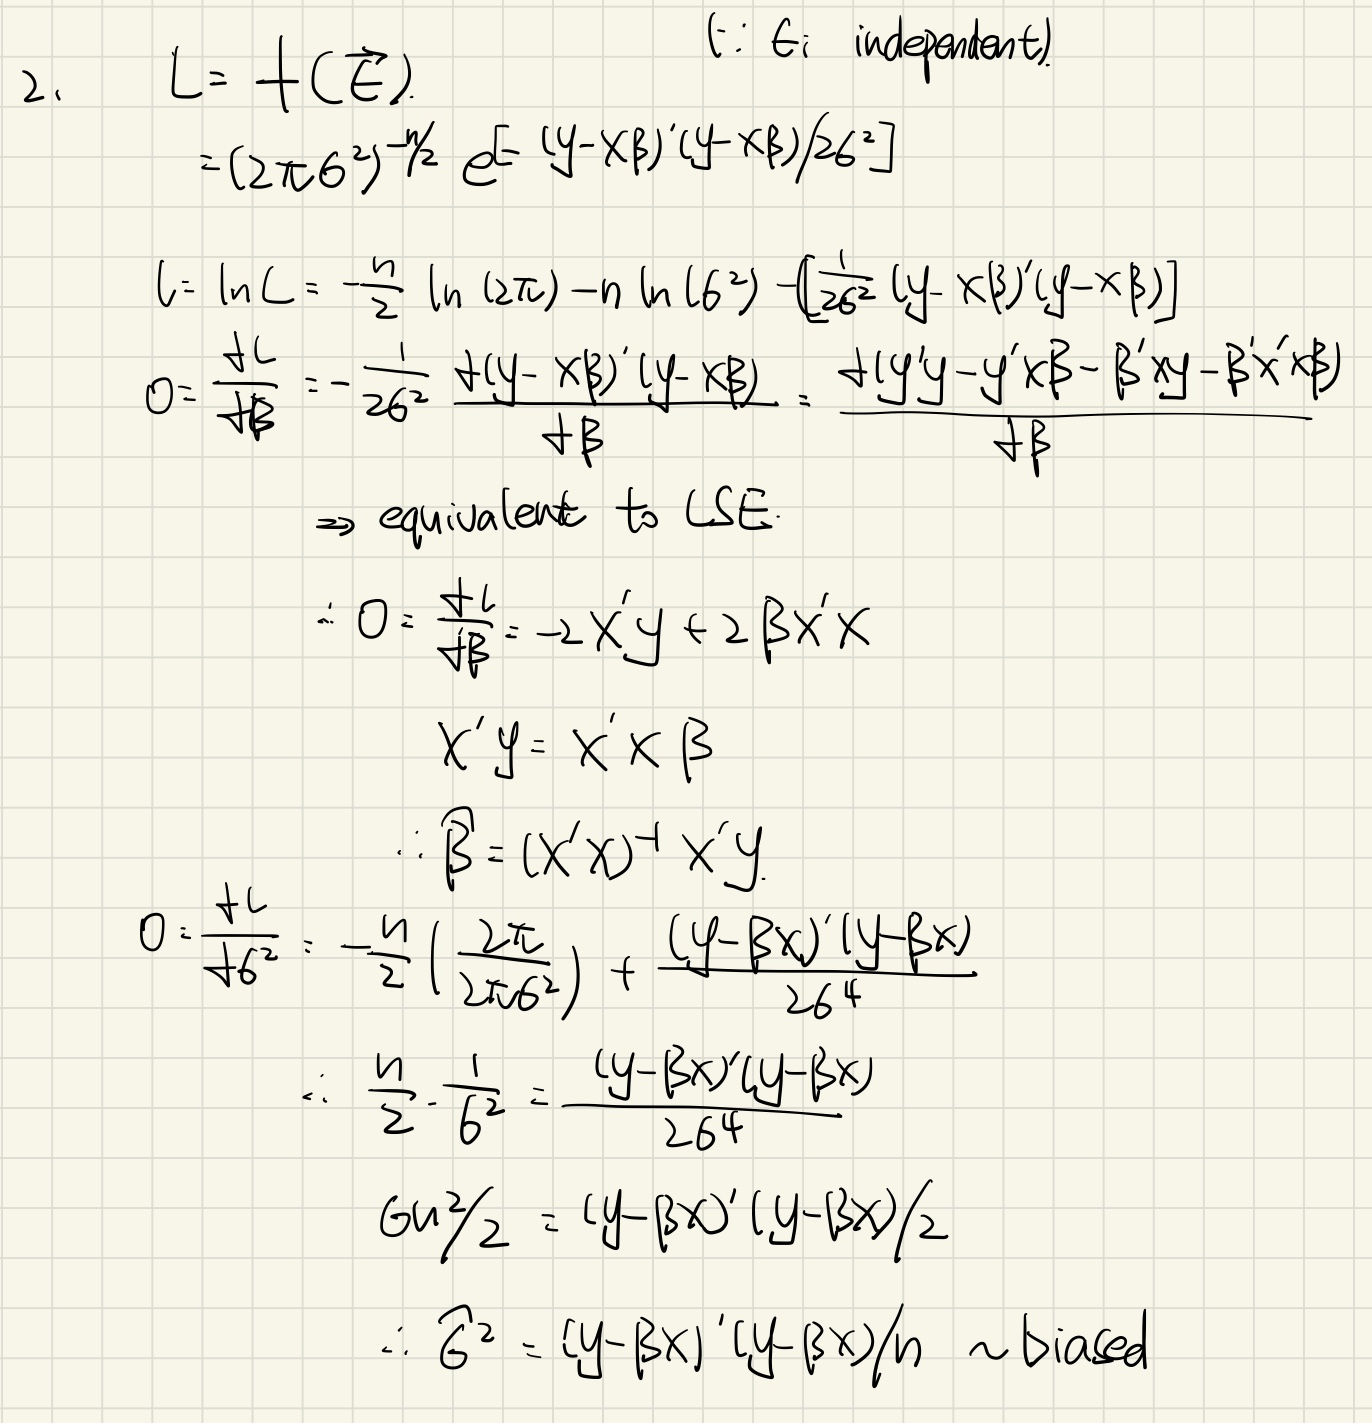 (∵ ϵi independent)
2. L = f(ϵ⃗).
= (2πσ²)^{-n/2} e^[- (y-Xβ)'(y-Xβ)/2σ²]
l = ln L = -n/2 ln (2π) - n ln (σ²) - [1/2σ² (y-Xβ)'(y-Xβ)]
0 = ∂L/∂β = - 1/2σ² ∂(y-Xβ)'(y-Xβ)/∂β = ∂(y'y - y'Xβ - β'xy - β'x'xβ)/∂β
⇒ equivalent to LSE.
∴ 0 = ∂L/∂β = -2X'y + 2βX'X
X'y = X'Xβ
∴ β̂ = (X'X)⁻¹ X'y.
0 = ∂L/∂σ² = -n/2 (2π/2πσ²) + (y-βX)'(y-βX)/2σ⁴
∴ n/2 · 1/σ² = (y-βX)'(y-βX)/2σ⁴
σn²/2 = (y-βX)'(y-βX)/2
∴ σ̂² = (y-βX)'(y-βX)/n ~ biased